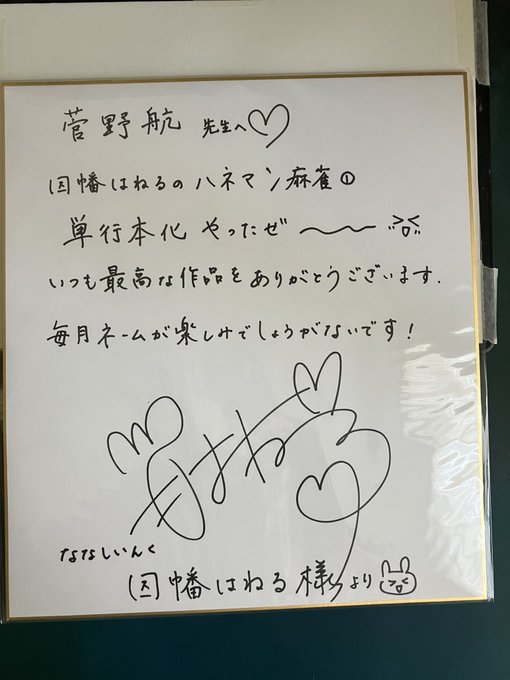 菅野航 先生へ♡
因幡はねるのハネマン麻雀①
単行本化 やったぜ〜〜
いつも最高な作品をありがとうございます.
毎月ネームが楽しみでしょうがないです！
はねる
ななしいんく
因幡はねる様より